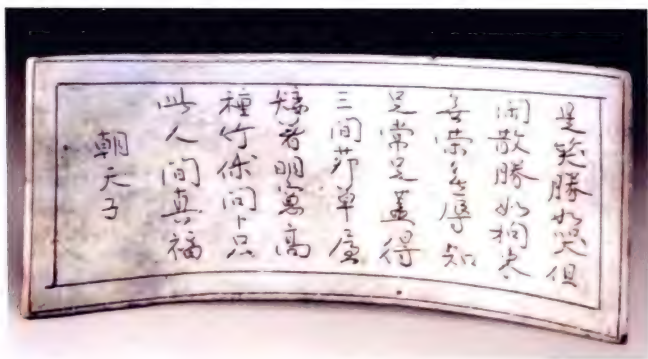 是笑勝如哭但
閑散勝如拘束
無荣無辱知
足常足蓋得
三間茆草屋
矮著明窓高
種竹休問卜只
此人間真福
朝天子